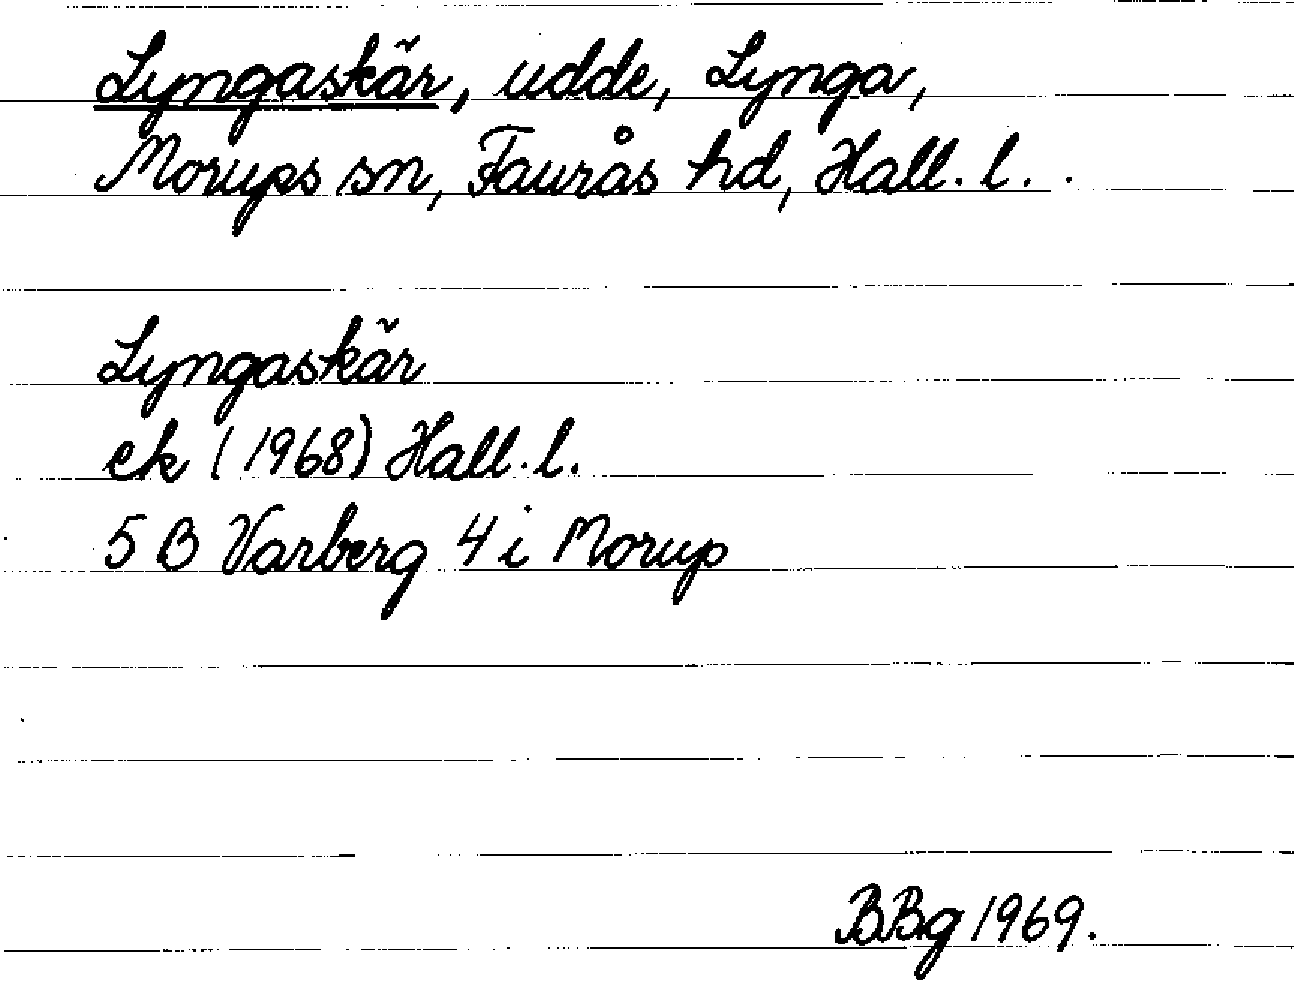 Lyngaskär, udde, Lynga,
Morups sn, Faurås hd, Hall. l.
Lyngaskär
ek (1968) Hall. l.
5 B Varberg 4 i Morup
BBg 1969.